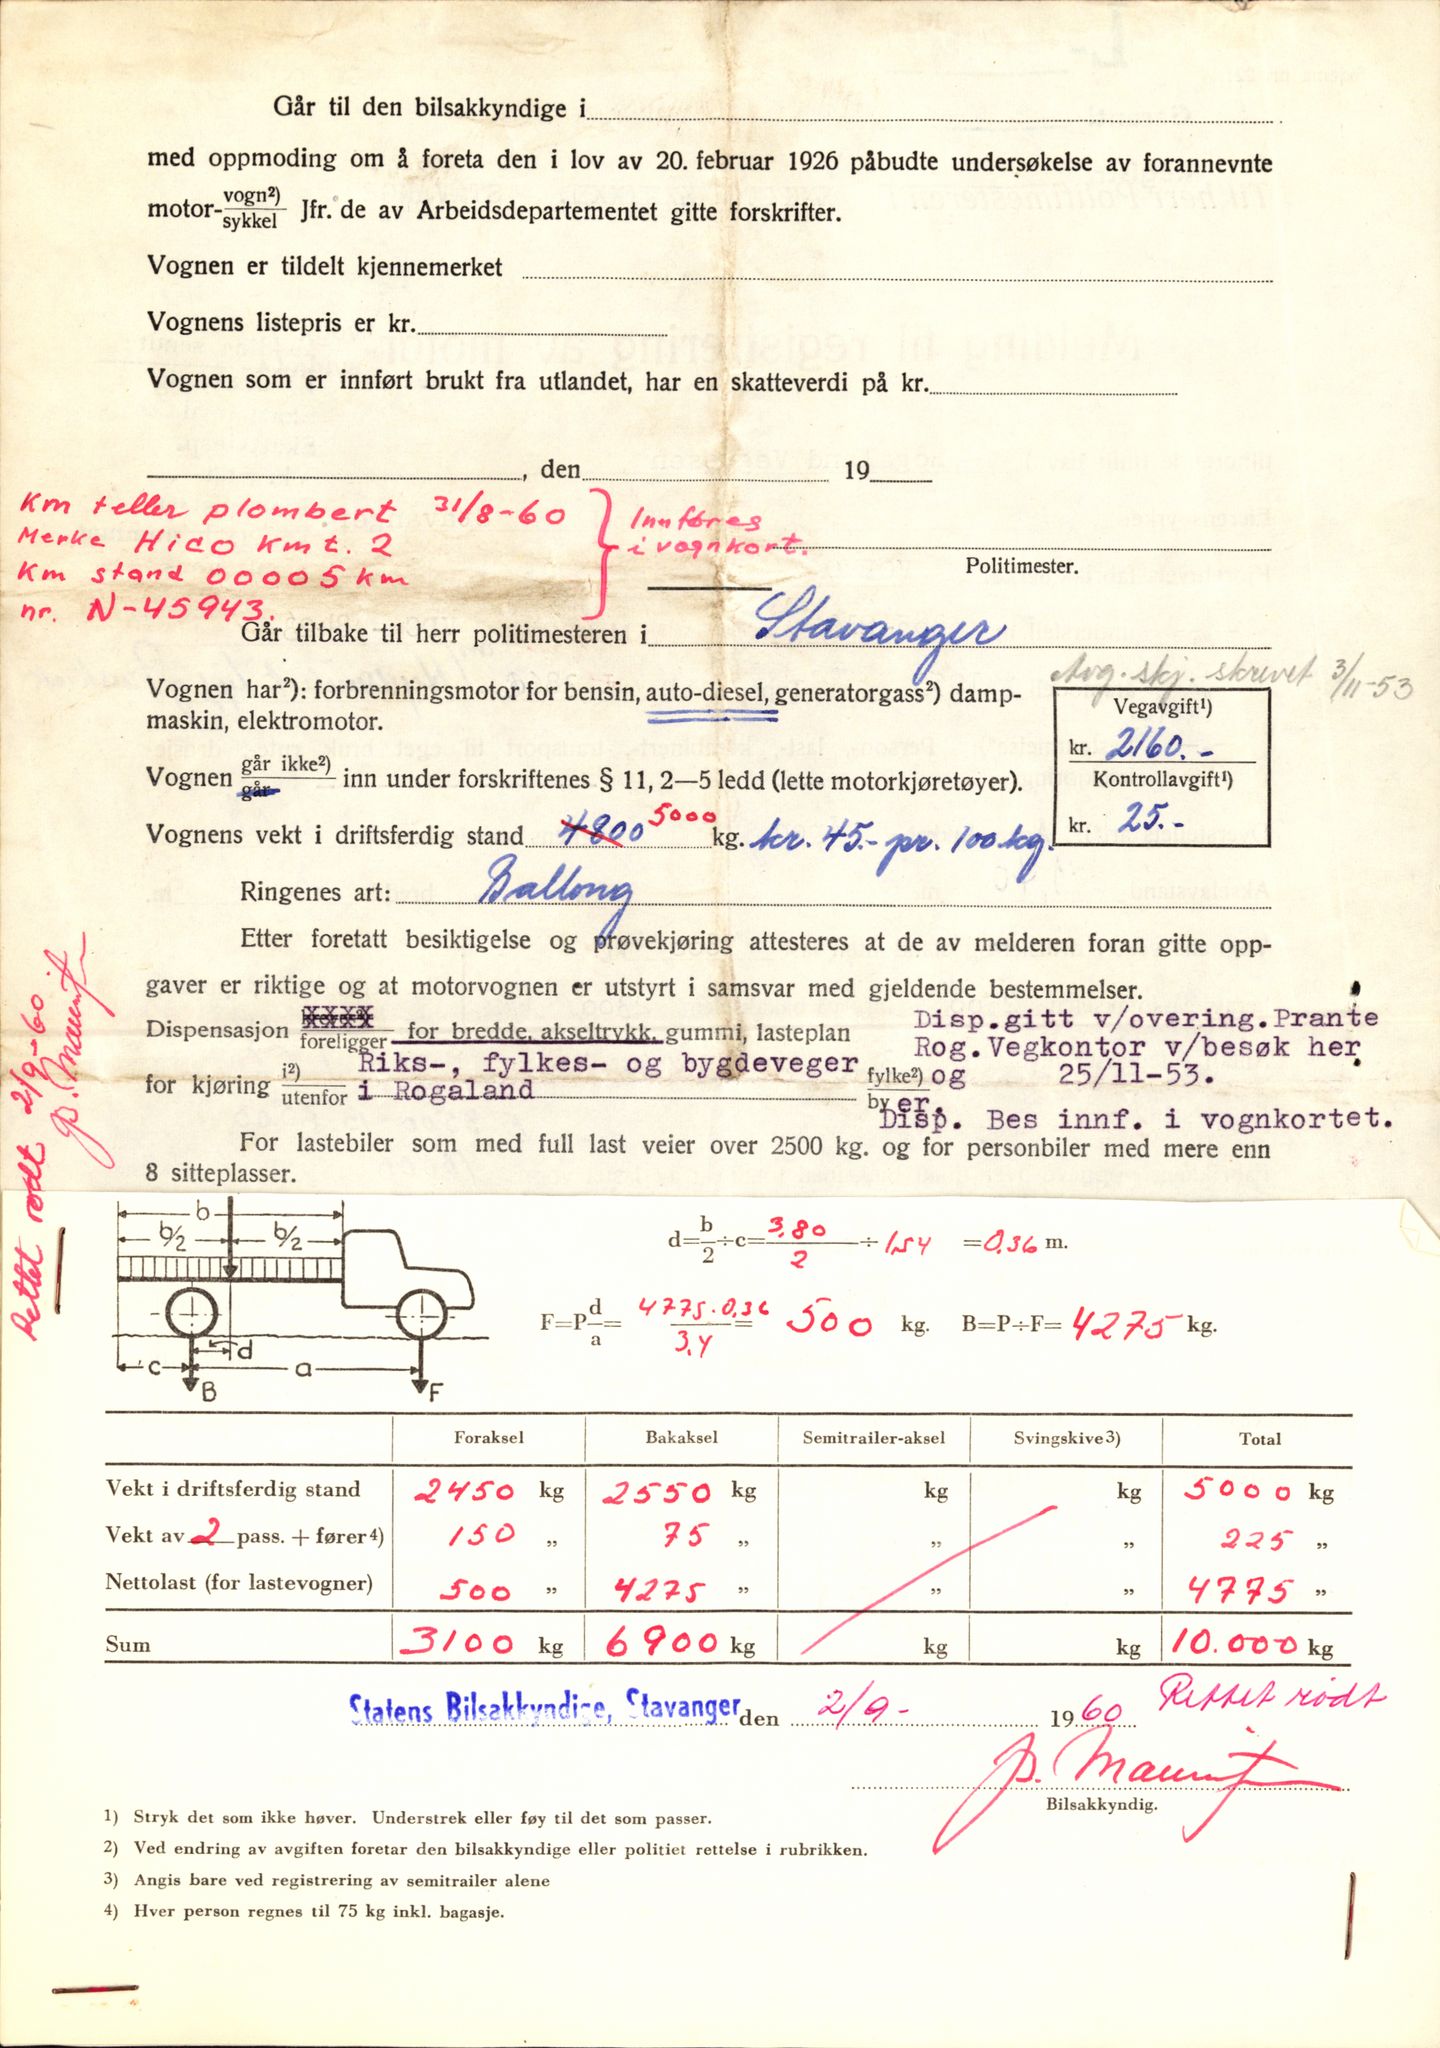 Går til den bilsakkyndige i
med oppmoding om å foreta den i lov av 20. februar 1926 påbudte undersøkelse av forannevnte
motor- vogn²) / sykkel Jfr. de av Arbeidsdepartementet gitte forskrifter.
Vognen er tildelt kjennemerket
Vognens listepris er kr.
Vognen som er innført brukt fra utlandet, har en skatteverdi på kr.
, den 19
Km teller plombert 31/8-60
Merke Hico Kmt. 2
Km stand 00005 km
nr. N-45943.
Innføres
i vognkort.
Politimester.
Går tilbake til herr politimesteren i Stavanger
Avg. skj. skrevet 3/11-53
Vognen har²): forbrenningsmotor for bensin, auto-diesel, generatorgass²) damp-
maskin, elektromotor.
Vegavgift¹)
kr. 2160.-
Kontrollavgift¹)
kr. 25.-
Vognen går ikke²) / går inn under forskriftenes § 11, 2—5 ledd (lette motorkjøretøyer).
Vognens vekt i driftsferdig stand 4800 5000 kg. kr. 45.- pr. 100 kg.
Ringenes art: Ballong
Etter foretatt besiktigelse og prøvekjøring attesteres at de av melderen foran gitte opp-
gaver er riktige og at motorvognen er utstyrt i samsvar med gjeldende bestemmelser.
Dispensasjon XXXX / foreligger for bredde, akseltrykk, gummi, lasteplan
Disp.gitt v/overing.Prante
Rog.Vegkontor v/besøk her
25/11-53.
Riks-, fylkes- og bygdeveger
for kjøring i²) / utenfor i Rogaland fylke²) og / by er.
Disp. Bes innf. i vognkortet.
For lastebiler som med full last veier over 2500 kg. og for personbiler med mere enn
8 sitteplasser.
Rettet rødt 2/9-60
b
b/2 b/2
c d a
B F
d = b/2 ÷ c = 3.80/2 ÷ 1,54 = 0,36 m.
F = P d/a = 4775·0,36 / 3,4 = 500 kg. B = P ÷ F = 4275 kg.
Foraksel Bakaksel Semitrailer-aksel Svingskive3) Total
Vekt i driftsferdig stand 2450 kg 2550 kg kg kg 5000 kg
Vekt av 2 pass. + fører4) 150 „ 75 „ „ „ 225 „
Nettolast (for lastevogner) 500 „ 4275 „ „ „ 4775 „
Sum 3100 kg 6900 kg kg kg 10.000 kg
Statens Bilsakkyndige, Stavanger den 2/9- 1960 Rettet rødt
Bilsakkyndig.
1) Stryk det som ikke høver. Understrek eller føy til det som passer.
2) Ved endring av avgiften foretar den bilsakkyndige eller politiet rettelse i rubrikken.
3) Angis bare ved registrering av semitrailer alene
4) Hver person regnes til 75 kg inkl. bagasje.